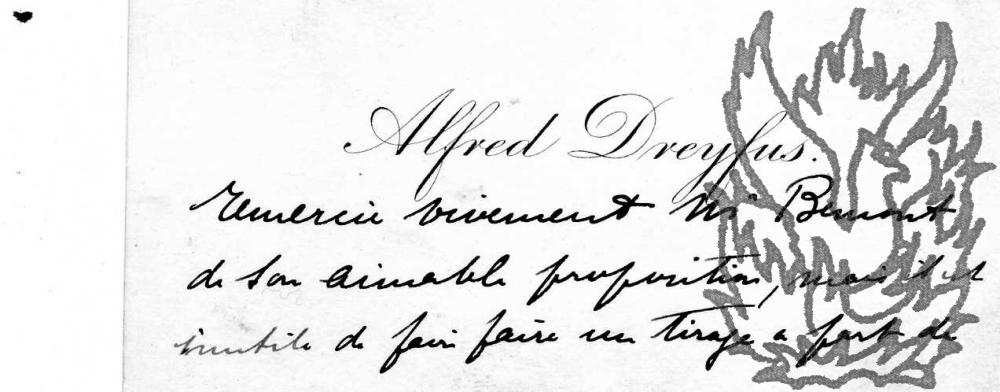 Alfred Dreyfus.
remercie vivement Mr Bemont
de son aimable proposition, mais il est
inutile de faire faire un tirage a part de